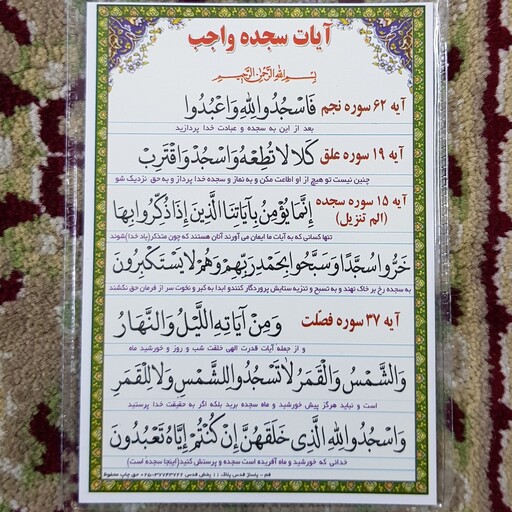 آیات سجده واجب
بسم الله الرحمن الرحیم
آیه ۶۲ سوره نجم فَاسْجُدُوا لِلّٰهِ وَاعْبُدُوا
بعد از این به سجده و عبادت خدا پردازید
آیه ۱۹ سوره علق كَلا لا تُطِعْهُ وَاسْجُدْ وَاقْتَرِبْ
چنین نیست تو هیچ از او اطاعت مکن و به نماز و سجده خدا پرداز و به حق نزدیک شو
آیه ۱۵ سوره سجده (الم تنزیل) إِنَّمَا يُؤْمِنُ بِآيَاتِنَا الَّذِينَ إِذَا ذُكِّرُوا بِهَا
تنها کسانی که به آیات ما ایمان می آورند آنان هستند که چون متذکر(یاد خدا)شوند
خَرُّوا سُجَّدًا وَسَبَّحُوا بِحَمْدِ رَبِّهِمْ وَهُمْ لا يَسْتَكْبِرُونَ
به سجده رخ بر خاک نهند و به تسبیح و تنزیه ستایش پروردگار کنندو ابدا به کبر و نخوت سر از فرمان حق نکشند
آیه ۳۷ سوره فصّلت وَمِنْ آيَاتِهِ اللَّيْلُ وَالنَّهَارُ
و از جمله آیات قدرت الهی خلقت شب و روز و خورشید و ماه
وَالشَّمْسُ وَالْقَمَرُ لا تَسْجُدُوا لِلشَّمْسِ وَلا لِلْقَمَرِ
است و نباید هرگز پیش خورشید و ماه سجده برید بلکه اگر به حقیقت خدا پرستید
وَاسْجُدُوا لِلّٰهِ الَّذِي خَلَقَهُنَّ إِنْ كُنْتُمْ إِيَّاهُ تَعْبُدُونَ
خدائی که خورشید و ماه آفریده است سجده و پرستش کنید(اینجا سجده است)
قم - پاساژ قدس پلاک ۱۱ پخش قدس ۳۷۷۴۳۷۴۲-۰۲۵ حق چاپ محفوظ